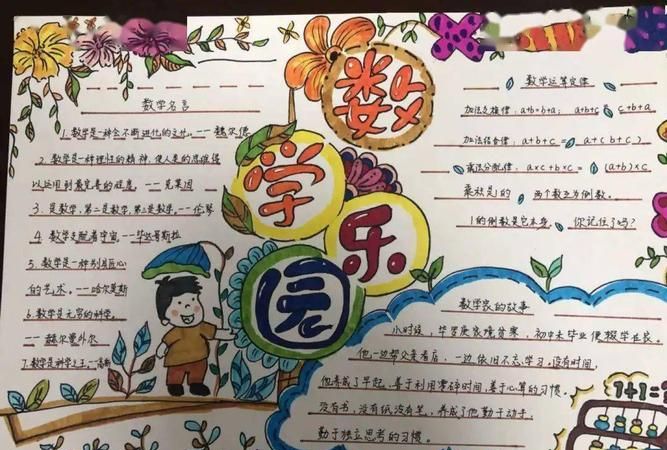 数学乐园
数学名言
1. 数学是一种会不断进化的文化。——魏尔德
2. 数学是一种理性的精神，使人类的思维得
以运用到最完善的程度 ——克莱因
3. 是数学，第二是数学，第三是数学。——伦琴
4. 数学支配着宇宙。——毕达哥斯拉
5. 数学是一种别具匠心
的艺术。——哈尔莫斯
6. 数学是无穷的科学。
——赫尔曼外尔
7. 数学是科学之王。——高斯
数学运算定律
加法交换律：a+b=b+a； a+b+c = c+b+a
加法结合律：a+b+c = a+(b+c)
乘法分配律：a×c+b×c = (a+b)×c
乘积是1的 两个数互为倒数。
1的倒数是它本身。 你记住了吗？
数学家的故事
小时候，华罗庚家境贫寒，初中未毕业便辍学在家。
他一边帮父亲看店，一边依旧不忘学习，没有时间，
他养成了早起，善于利用零碎时间，善于心算的习惯。
没有书，没有纸没有笔，养成了他勤于动手，
勤于独立思考的习惯。
1+1=